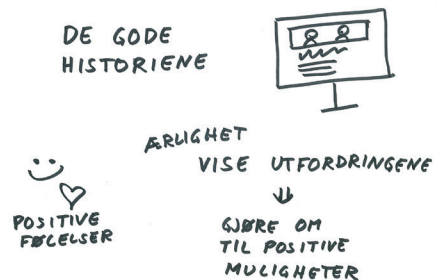 DE GODE
HISTORIENE
ÆRLIGHET
VISE UTFORDRINGENE
POSITIVE
FØLELSER
GJØRE OM
TIL POSITIVE
MULIGHETER